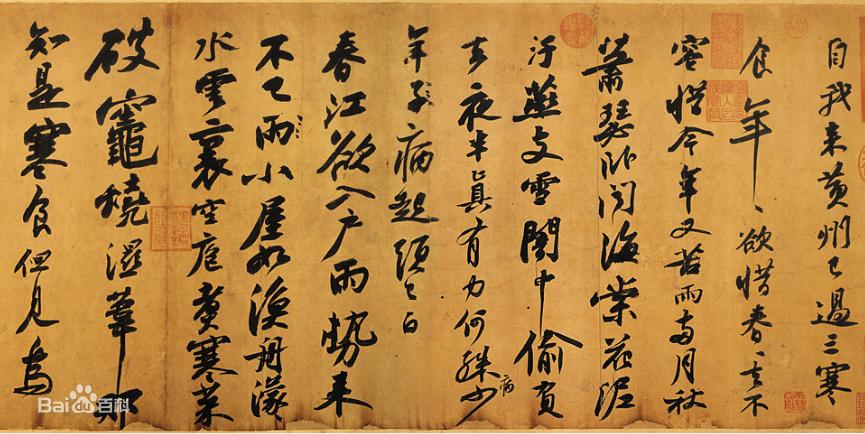 自我来黄州已過三寒
食年〻欲惜春〻去不
容惜今年又苦雨兩月秋
蕭瑟卧聞海棠花泥
汙燕支雪闇中偷負
去夜半真有力何殊少
病
年子病起頭已白
春江欲入户雨勢来
不已雨小屋如漁舟濛〻
水雲裏空庖煮寒菜
破竈燒濕葦那
知是寒食但見烏
Bai du 百科